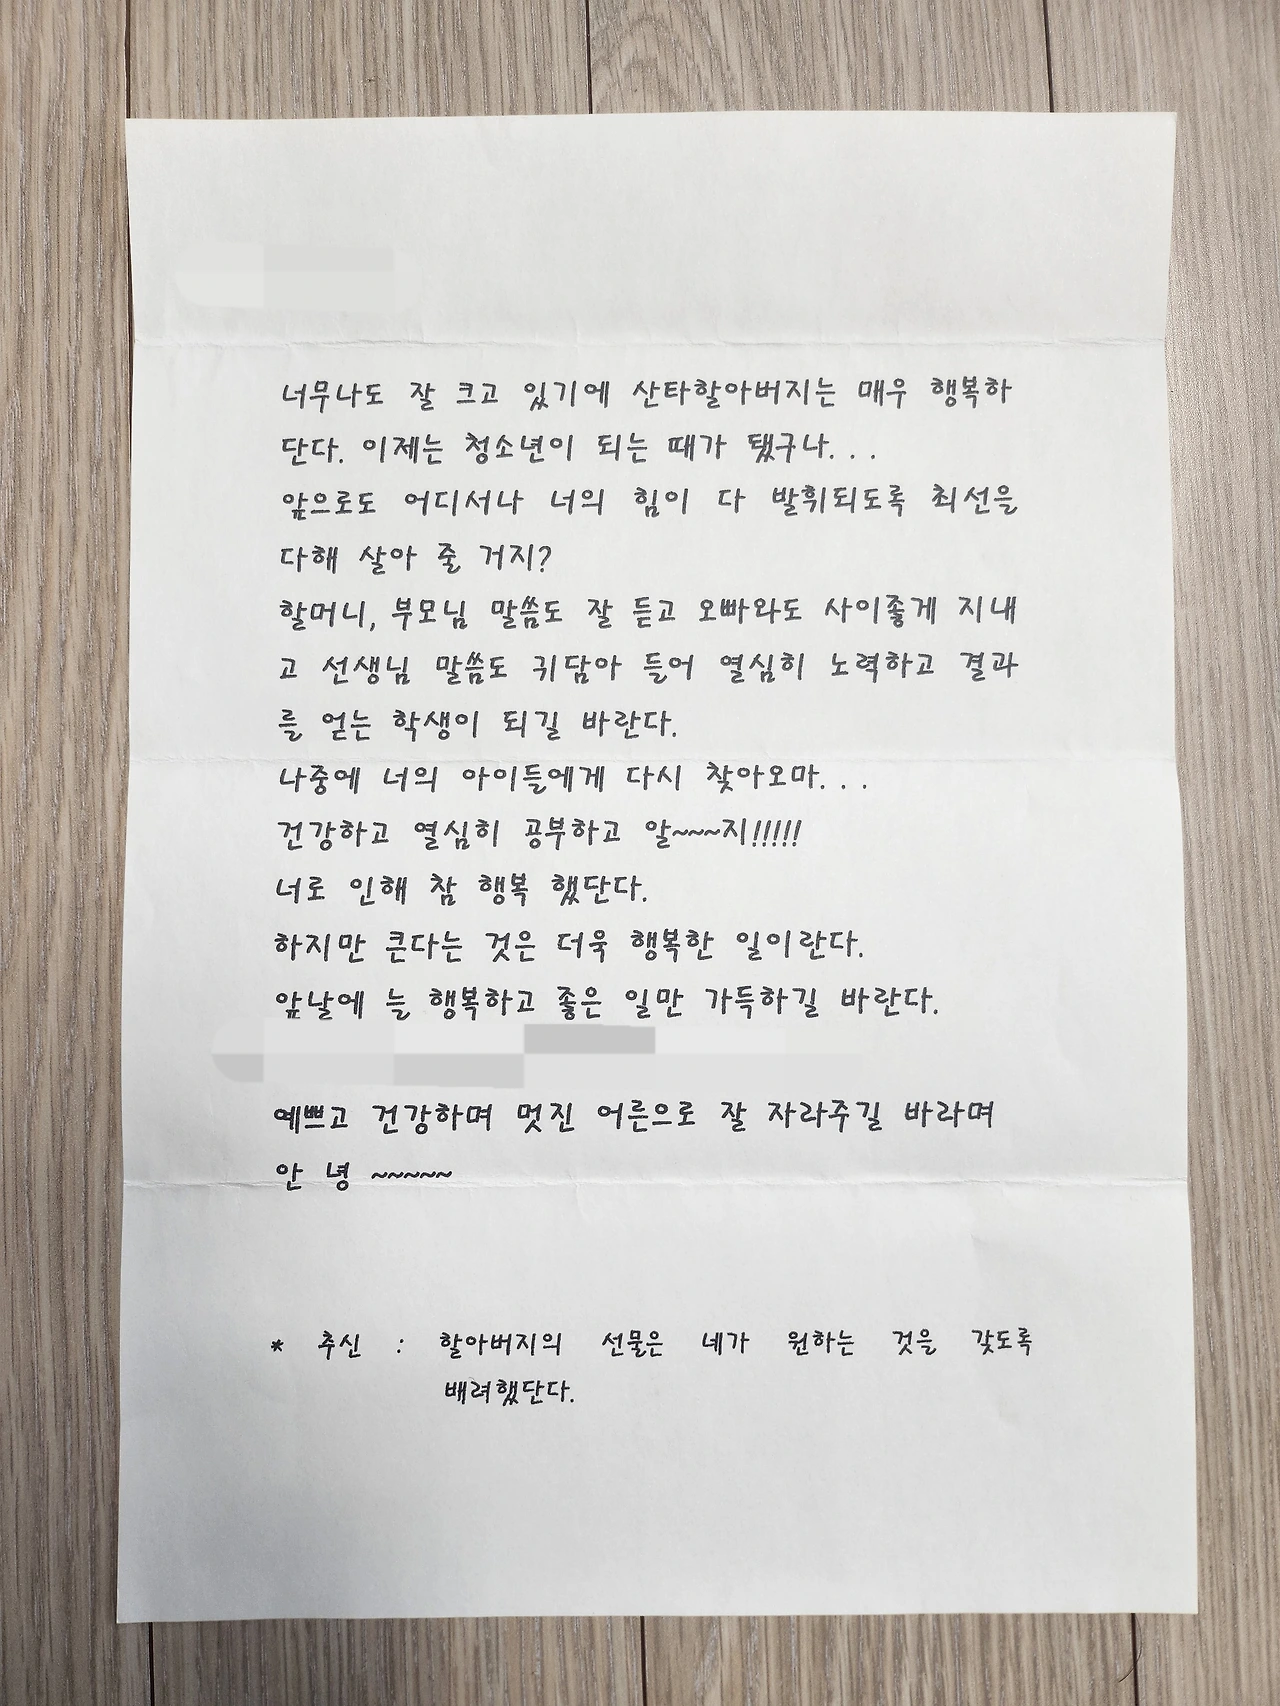 너무나도 잘 크고 있기에 산타할아버지는 매우 행복하
단다. 이제는 청소년이 되는 때가 됐구나. . .
앞으로도 어디서나 너의 힘이 다 발휘되도록 최선을
다해 살아 줄 거지?
할머니, 부모님 말씀도 잘 듣고 오빠와도 사이좋게 지내
고 선생님 말씀도 귀담아 들어 열심히 노력하고 결과
를 얻는 학생이 되길 바란다.
나중에 너의 아이들에게 다시 찾아오마. . .
건강하고 열심히 공부하고 알~~~지!!!!!
너로 인해 참 행복 했단다.
하지만 큰다는 것은 더욱 행복한 일이란다.
앞날에 늘 행복하고 좋은 일만 가득하길 바란다.
예쁘고 건강하며 멋진 어른으로 잘 자라주길 바라며
안 녕 ~~~~~
* 추신 : 할아버지의 선물은 네가 원하는 것을 갖도록
배려했단다.